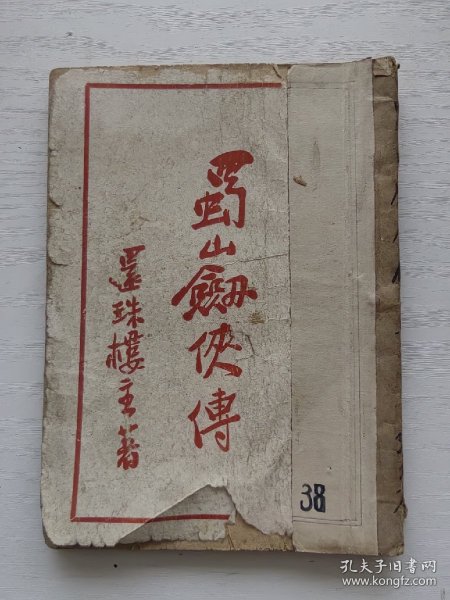 蜀山劔俠傳
還珠樓主著
38
孔夫子旧书网
www.kongfz.com